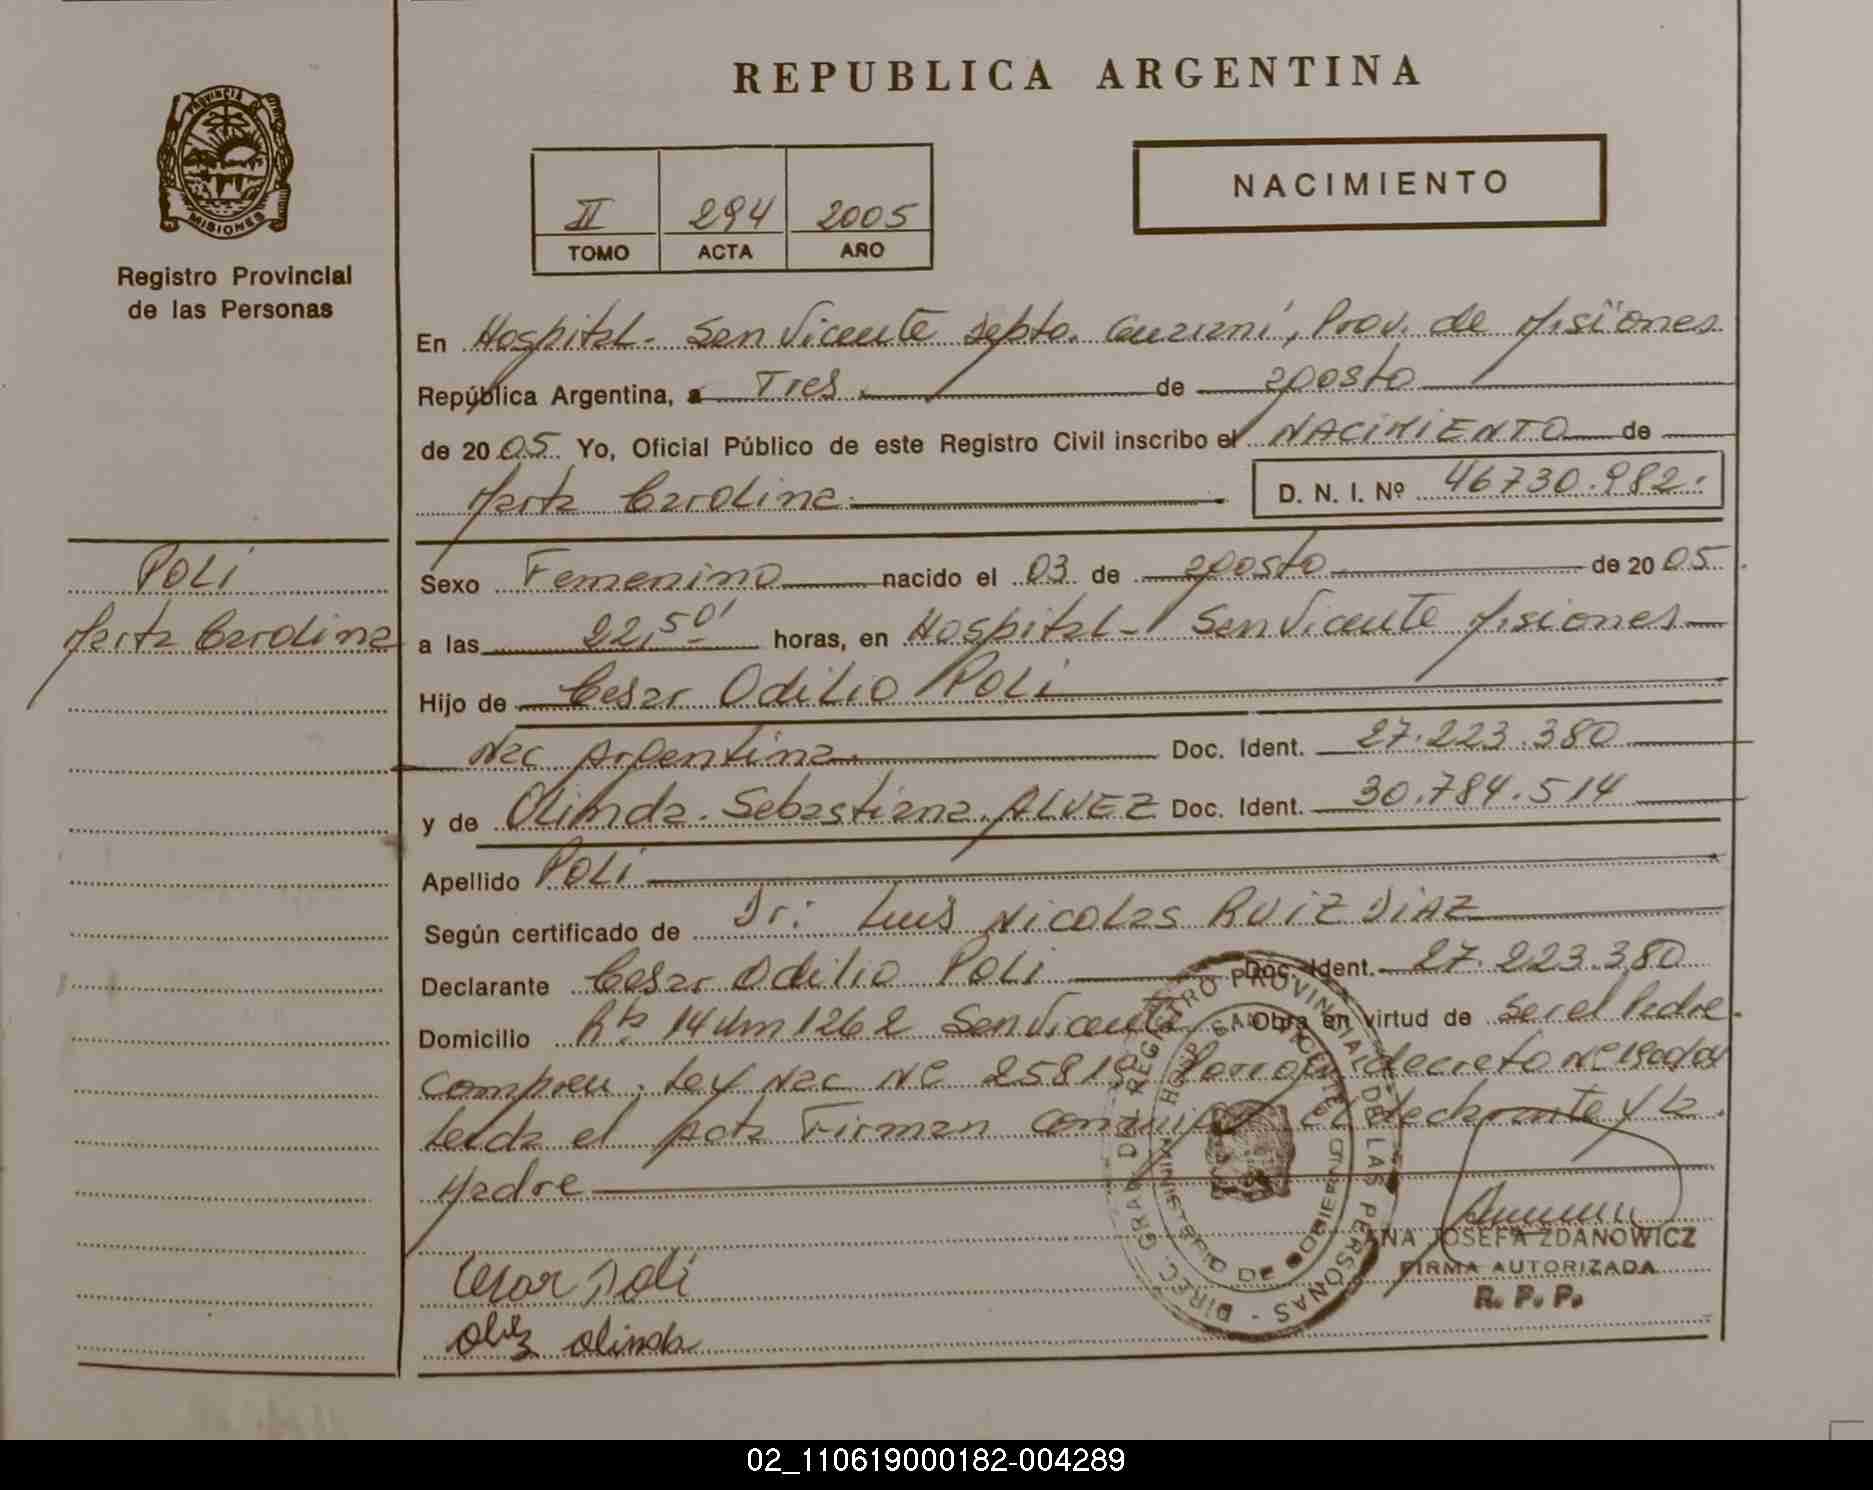 REPUBLICA ARGENTINA
PROVINCIA DE
MISIONES
Registro Provincial
de las Personas
II 294 2005
TOMO ACTA AÑO
NACIMIENTO
En Hospital - San Vicente Depto. Guaraní, Prov. de Misiones
República Argentina, a Tres de agosto
de 2005 Yo, Oficial Público de este Registro Civil inscribo el NACIMIENTO de
Marta Carolina D. N. I. Nº 46730.982.
POLI
Marta Carolina
Sexo Femenino nacido el 03 de agosto de 2005
a las 22,50' horas, en Hospital - San Vicente Misiones
Hijo de Cesar Odilio Poli
Nac Argentina. Doc. Ident. 27.223.380
y de Olinda Sebastiana ALVEZ Doc. Ident. 30.784.514
Apellido POLI
Según certificado de Dr: Luis Nicolas RUIZ DIAZ
Declarante Cesar Odilio Poli Doc. Ident. 27.223.380
Domicilio Rta 14 Km 1262 San Vicente Obra en virtud de Ser el Padre.
Ley Nac Nº 25819 decreto Nº
Leida el Acta Firman conmigo el declarante y la
Madre
DIREC. GRAL. DEL REGISTRO PROVINCIAL DE LAS PERSONAS
HOSP. SAN VICENTE
MINISTERIO DE GOBIERNO
ANA JOSEFA ZDANOWICZ
FIRMA AUTORIZADA
R. P. P.
Cesar Poli
Olinda
02_110619000182-004289